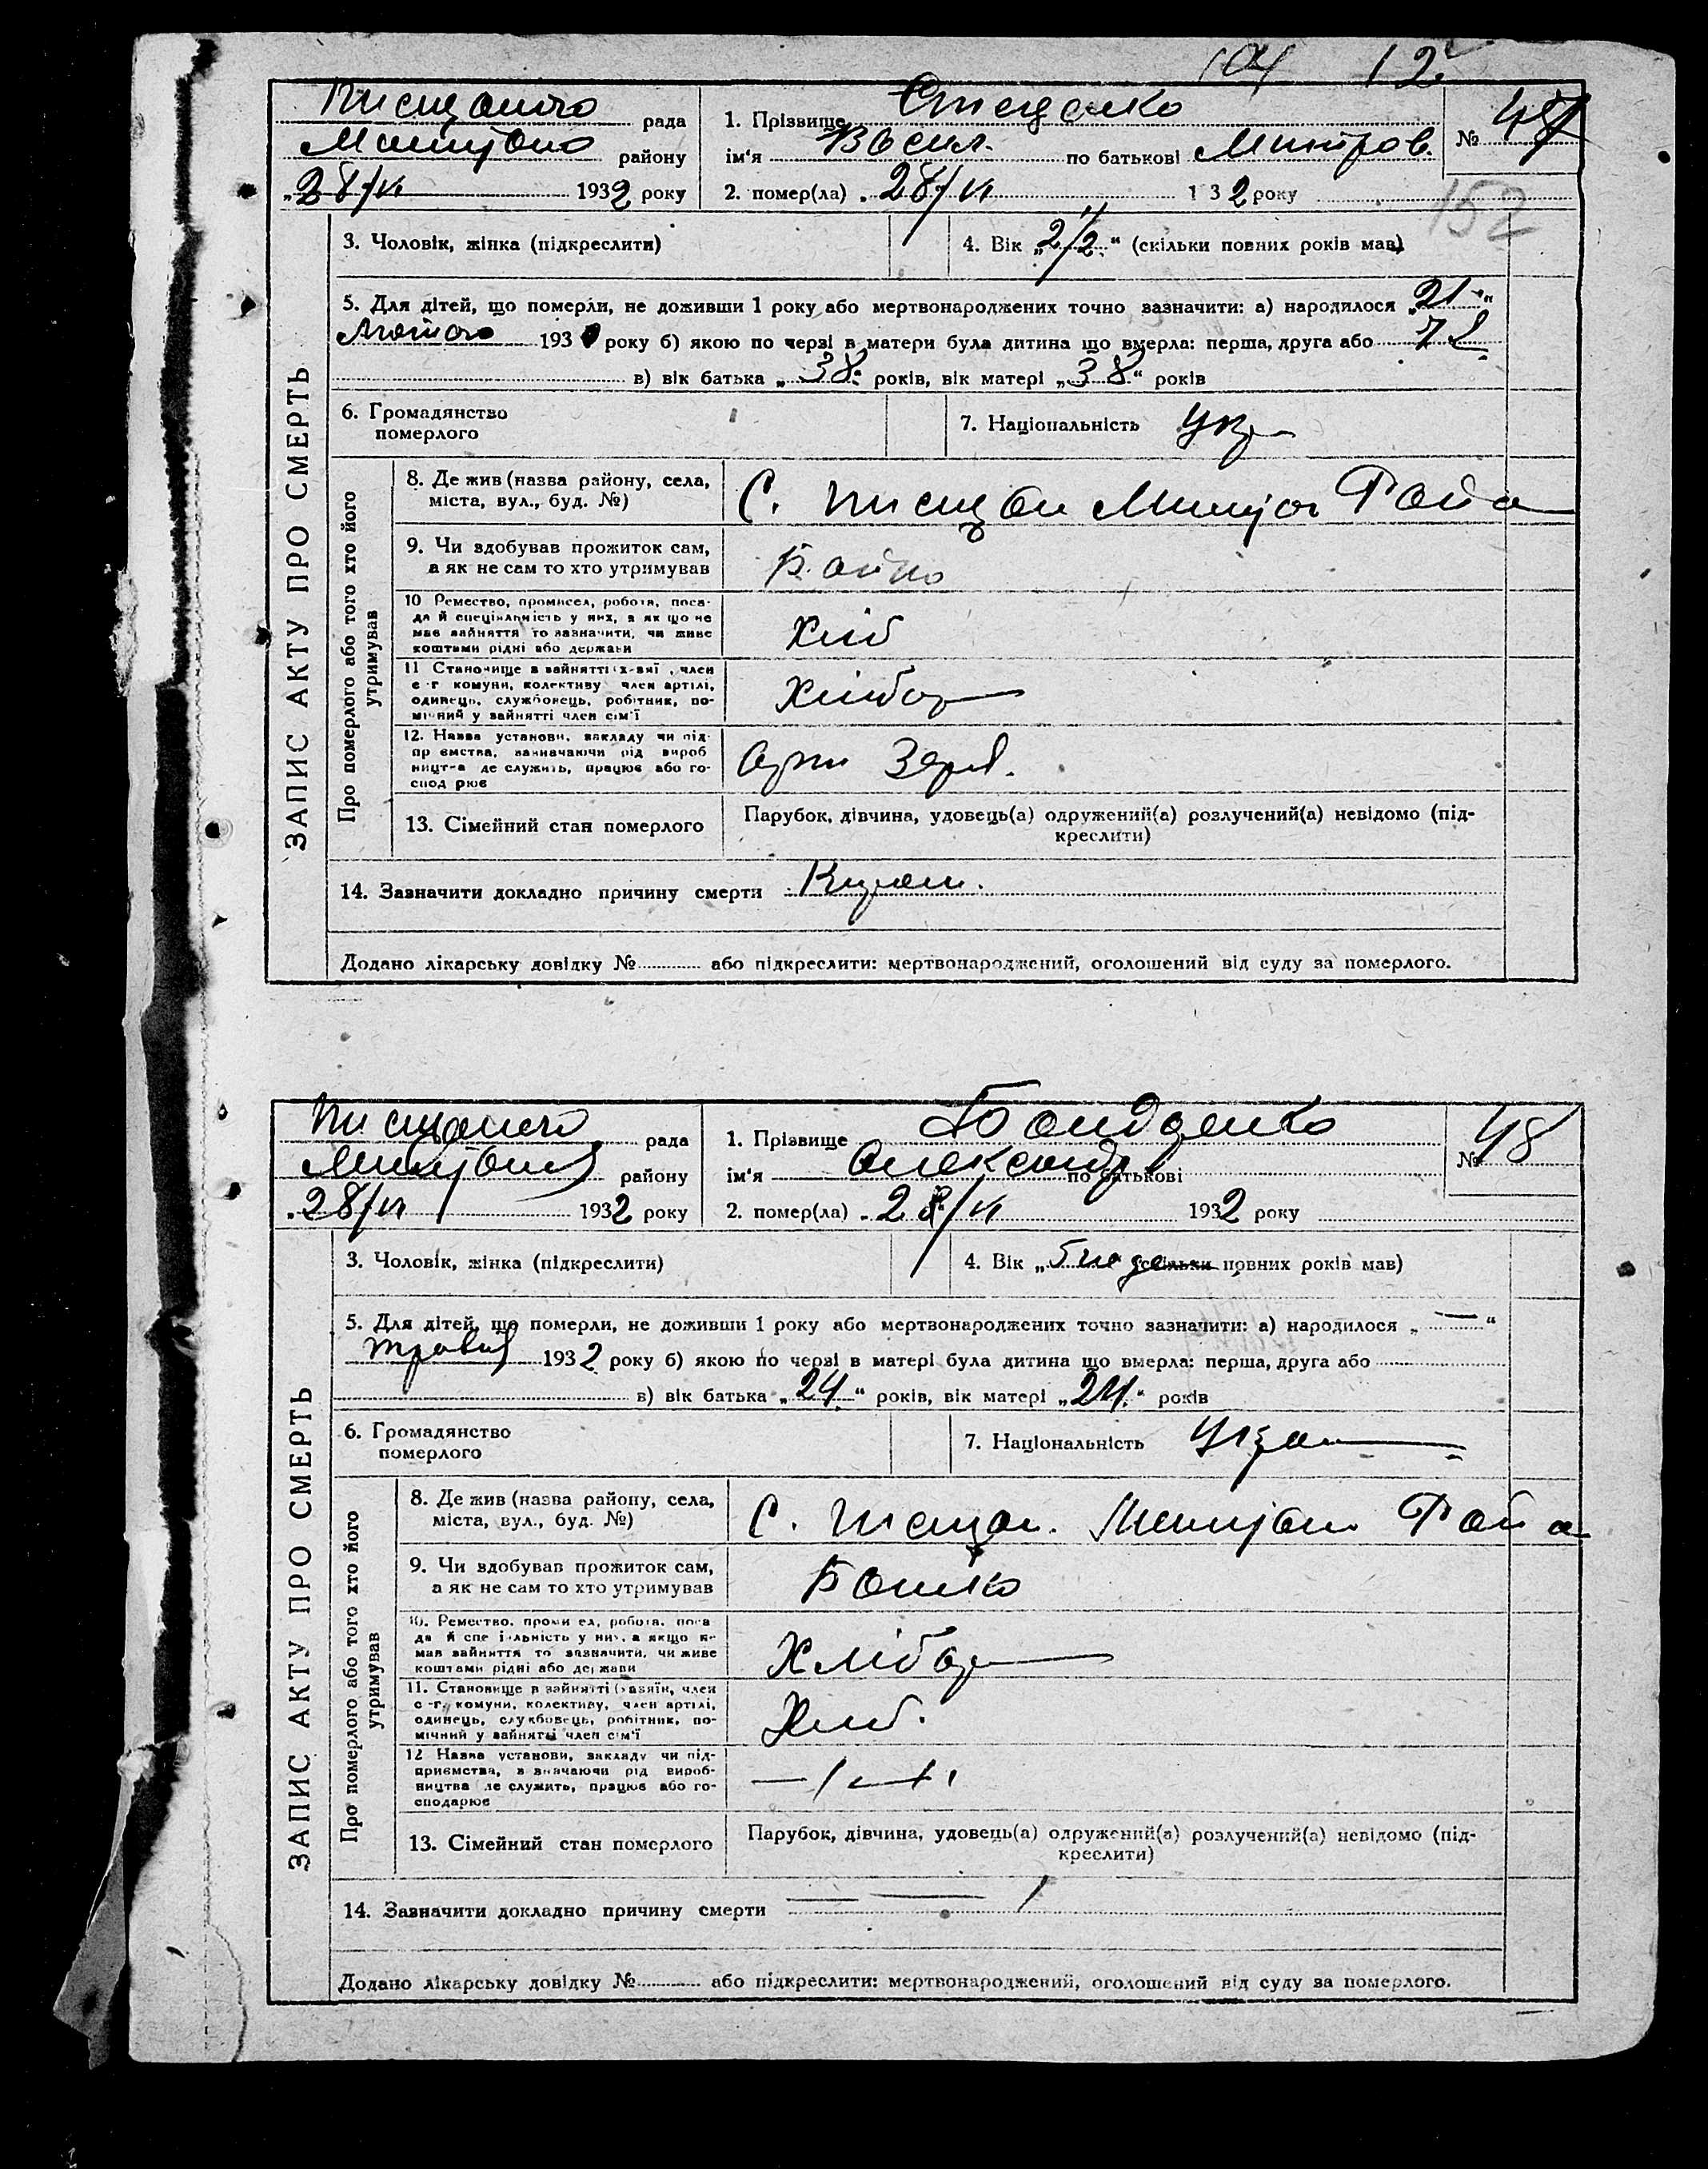 104 12
рада
району
"28/VI 1932 року
1. Прізвище Стеценко
ім'я Васил. по батькові Митров.
2. помер(ла) "28/VI 1 3 2 року
№ 47
152
ЗАПИС АКТУ ПРО СМЕРТЬ
3. Чоловік, жінка (підкреслити)
4. Вік „2 1/2" (скільки повних років мав)
5. Для дітей, що померли, не доживши 1 року або мертвонароджених точно зазначити: а) народилося „21"
Лютого 1930 року б) якою по черзі в матери була дитина що вмерла: перша, друга або
в) вік батька „38" років, вік матері „38" років
6. Громадянство
померлого
7. Національність Укр
Про померлого або того хто його
утримував
8. Де жив (назва району, села,
міста, вул., буд. №)
С. Пищан Района
9. Чи здобував прожиток сам,
а як не сам то хто утримував
Батько
10 Ремество, промисел, робота, поса-
да й спеціяльність у них, а як що не
має зайняття то зазначити, чи живе
коштами рідні або держави
Хліб
11 Становище в зайнятті (х-зяї , член
с -г комуни, колективу член артілі,
одинець, службовець, робітник, по-
мічний у зайнятті член сім'ї
Хлібор
12. Назва установи, закладу чи під-
пр ємства, зазначаючи рід вироб
ницт-а де служить, працює або го-
спод рює
13. Сімейний стан померлого
Парубок, дівчина, удовець(а) одружений(а) розлучений(а) невідомо (під-
креслити)
14. Зазначити докладно причину смерти
Додано лікарську довідку № або підкреслити: мертвонароджений, оголошений від суду за померлого.
рада
району
"28/VI 1932 року
1. Прізвище Бондаренко
ім'я Олександр по батькові
2. помер(ла) "28/VI 1932 року
№ 48
ЗАПИС АКТУ ПРО СМЕРТЬ
3. Чоловік, жінка (підкреслити)
4. Вік „ (скільки повних років мав)
5. Для дітей, що померли, не доживши 1 року або мертвонароджених точно зазначити: а) народилося „—"
травня 1932 року б) якою по черзі в матері була дитина що вмерла: перша, друга або
в) вік батька „24" років, вік матері „24" років
6. Громадянство
померлого
7. Національність Укра
Про померлого або того хто його
утримував
8. Де жив (назва району, села,
міста, вул., буд. №)
С. Пищан. Района
9. Чи здобував прожиток сам,
а як не сам то хто утримував
Батько
10. Ремество, проми ел, робота, поса
да й спе і-льність у них, а якщо н-
має зайняття то зазначити, чи живе
коштами рідні або держави
Хлібор
11. Становище в зайнятті (хазяїн, член
с -г. комуни, колективу, член артілі,
одинець, службовець, робітник, по-
мічний у зайнятті член сім'ї
Хліб.
12 Назва установи, закладу чи під-
приємства, зазначаючи рід вироб-
ництва де служить, працює або го-
сподарює
13. Сімейний стан померлого
Парубок, дівчина, удовець(а) одружений(а) розлучений(а) невідомо (під-
креслити)
14. Зазначити докладно причину смерти
Додано лікарську довідку № або підкреслити: мертвонароджений, оголошений від суду за померлого.